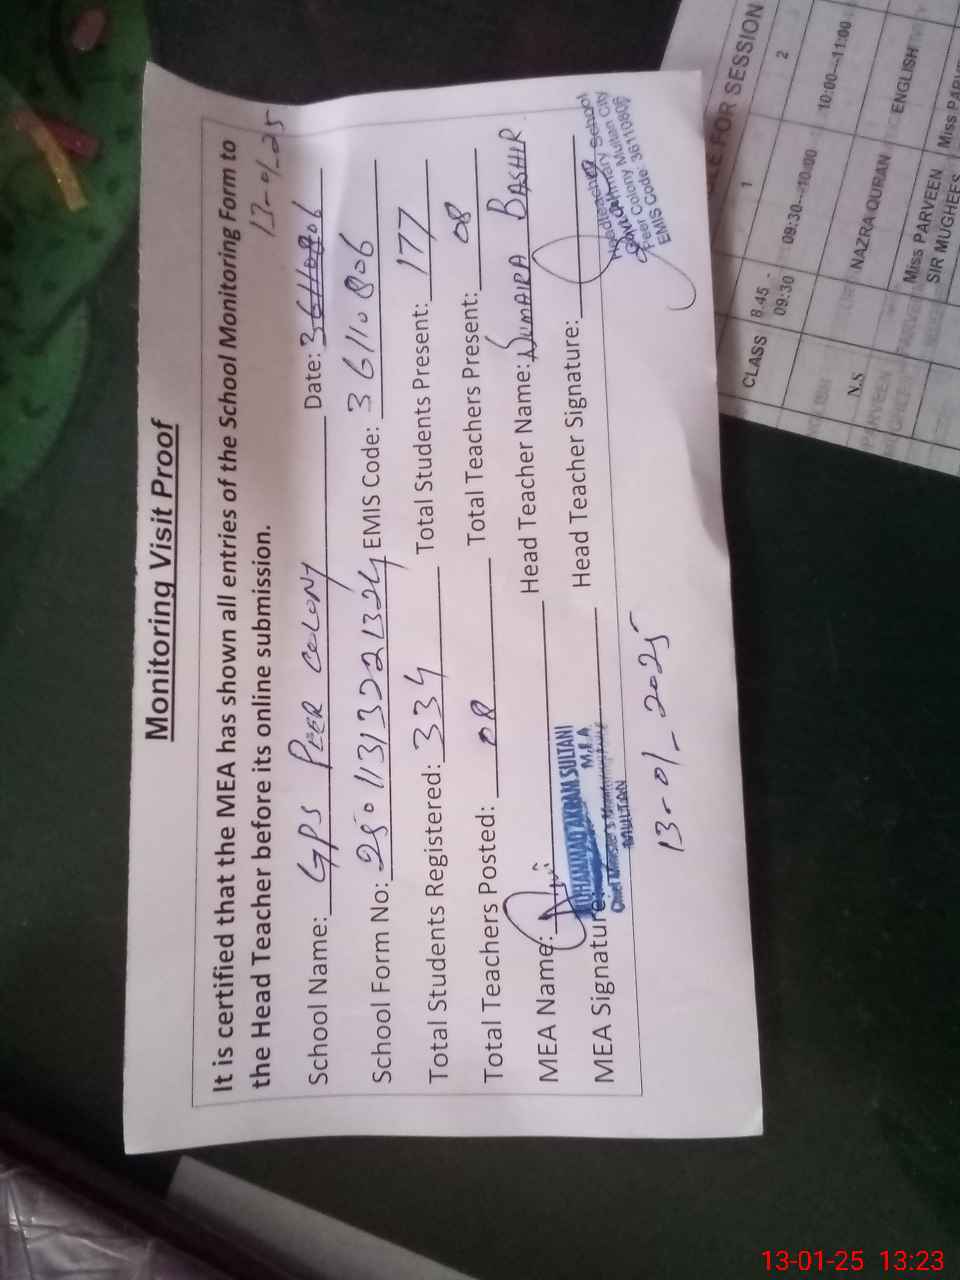 Monitoring Visit Proof
It is certified that the MEA has shown all entries of the School Monitoring Form to
the Head Teacher before its online submission.
13-01-25
School Name: GPS PEER COLONY Date: 36110806
School Form No: EMIS Code: 36110806
Total Students Registered: 334 Total Students Present: 177
Total Teachers Posted: 08 Total Teachers Present: 08
MEA Name: Head Teacher Name: SUMAIRA BASHIR
MUHAMMAD AKRAM SULTANI
M.E.A
Chief Minister's Monitoring Force
MULTAN
MEA Signature: Head Teacher Signature:
Headteacher
Govt. Primary School
Peer Colony Multan City
EMIS Code: 36110806
13-01-2025
FOR SESSION
CLASS 8.45 - 09:30 1 2
09:30---10:00 10:00---11:00
N.S NAZRA QURAN ENGLISH
Miss PARVEEN
SIR MUGHEES
13-01-25 13:23